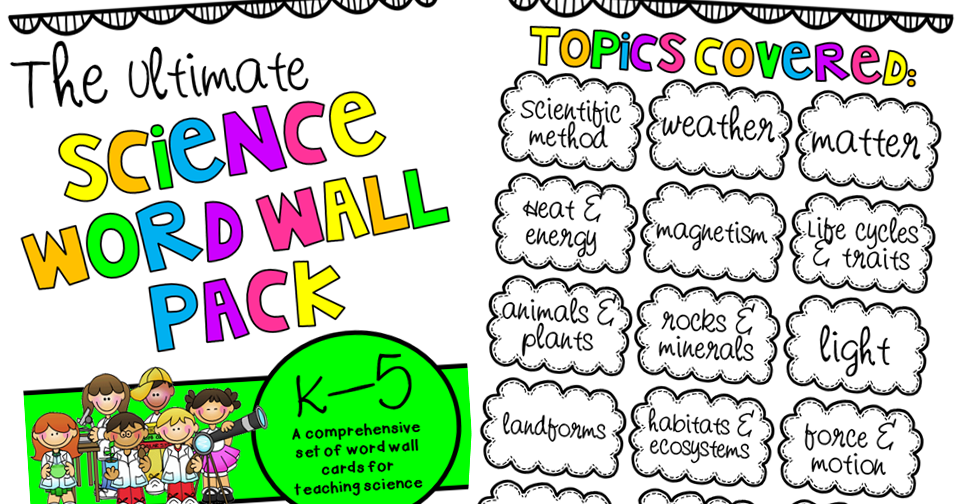 The Ultimate
SCiENCE
WORD WALL
PACK
K-5
A comprehensive
set of word wall
cards for
teaching science
TOPiCS COVERED:
scientific
method
weather
matter
Heat &
energy
magnetism
Life cycles
& traits
animals &
plants
rocks &
minerals
light
landforms
habitats &
ecosystems
force &
motion